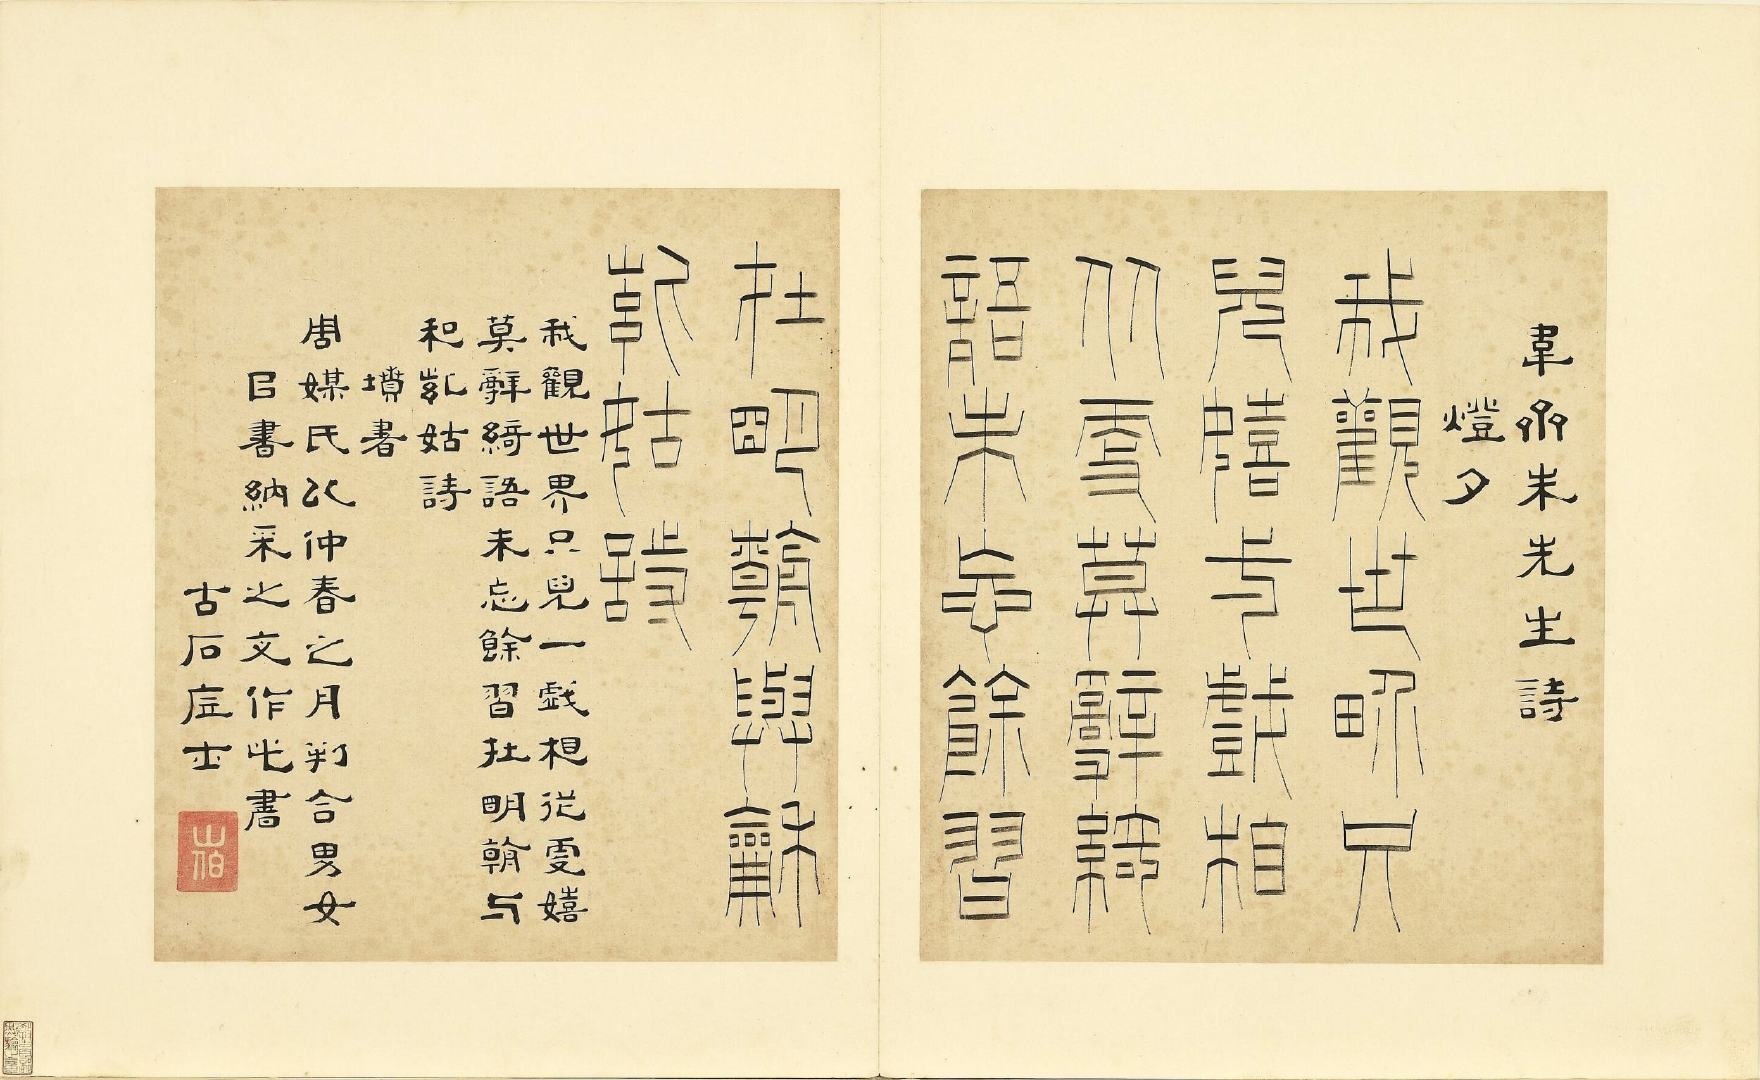 韋齋朱先生詩
燈夕
我觀世界只
兒嬉戲相
从更莫辭綺
語未忘餘習
在明朝與龢
姑詩
我觀世界只兒一戲相從更嬉
莫辭綺語未忘餘習在明朝与
和姑詩
墳書
周媒氏以仲春之月判合男女
㠯書納采之文作此書
古石